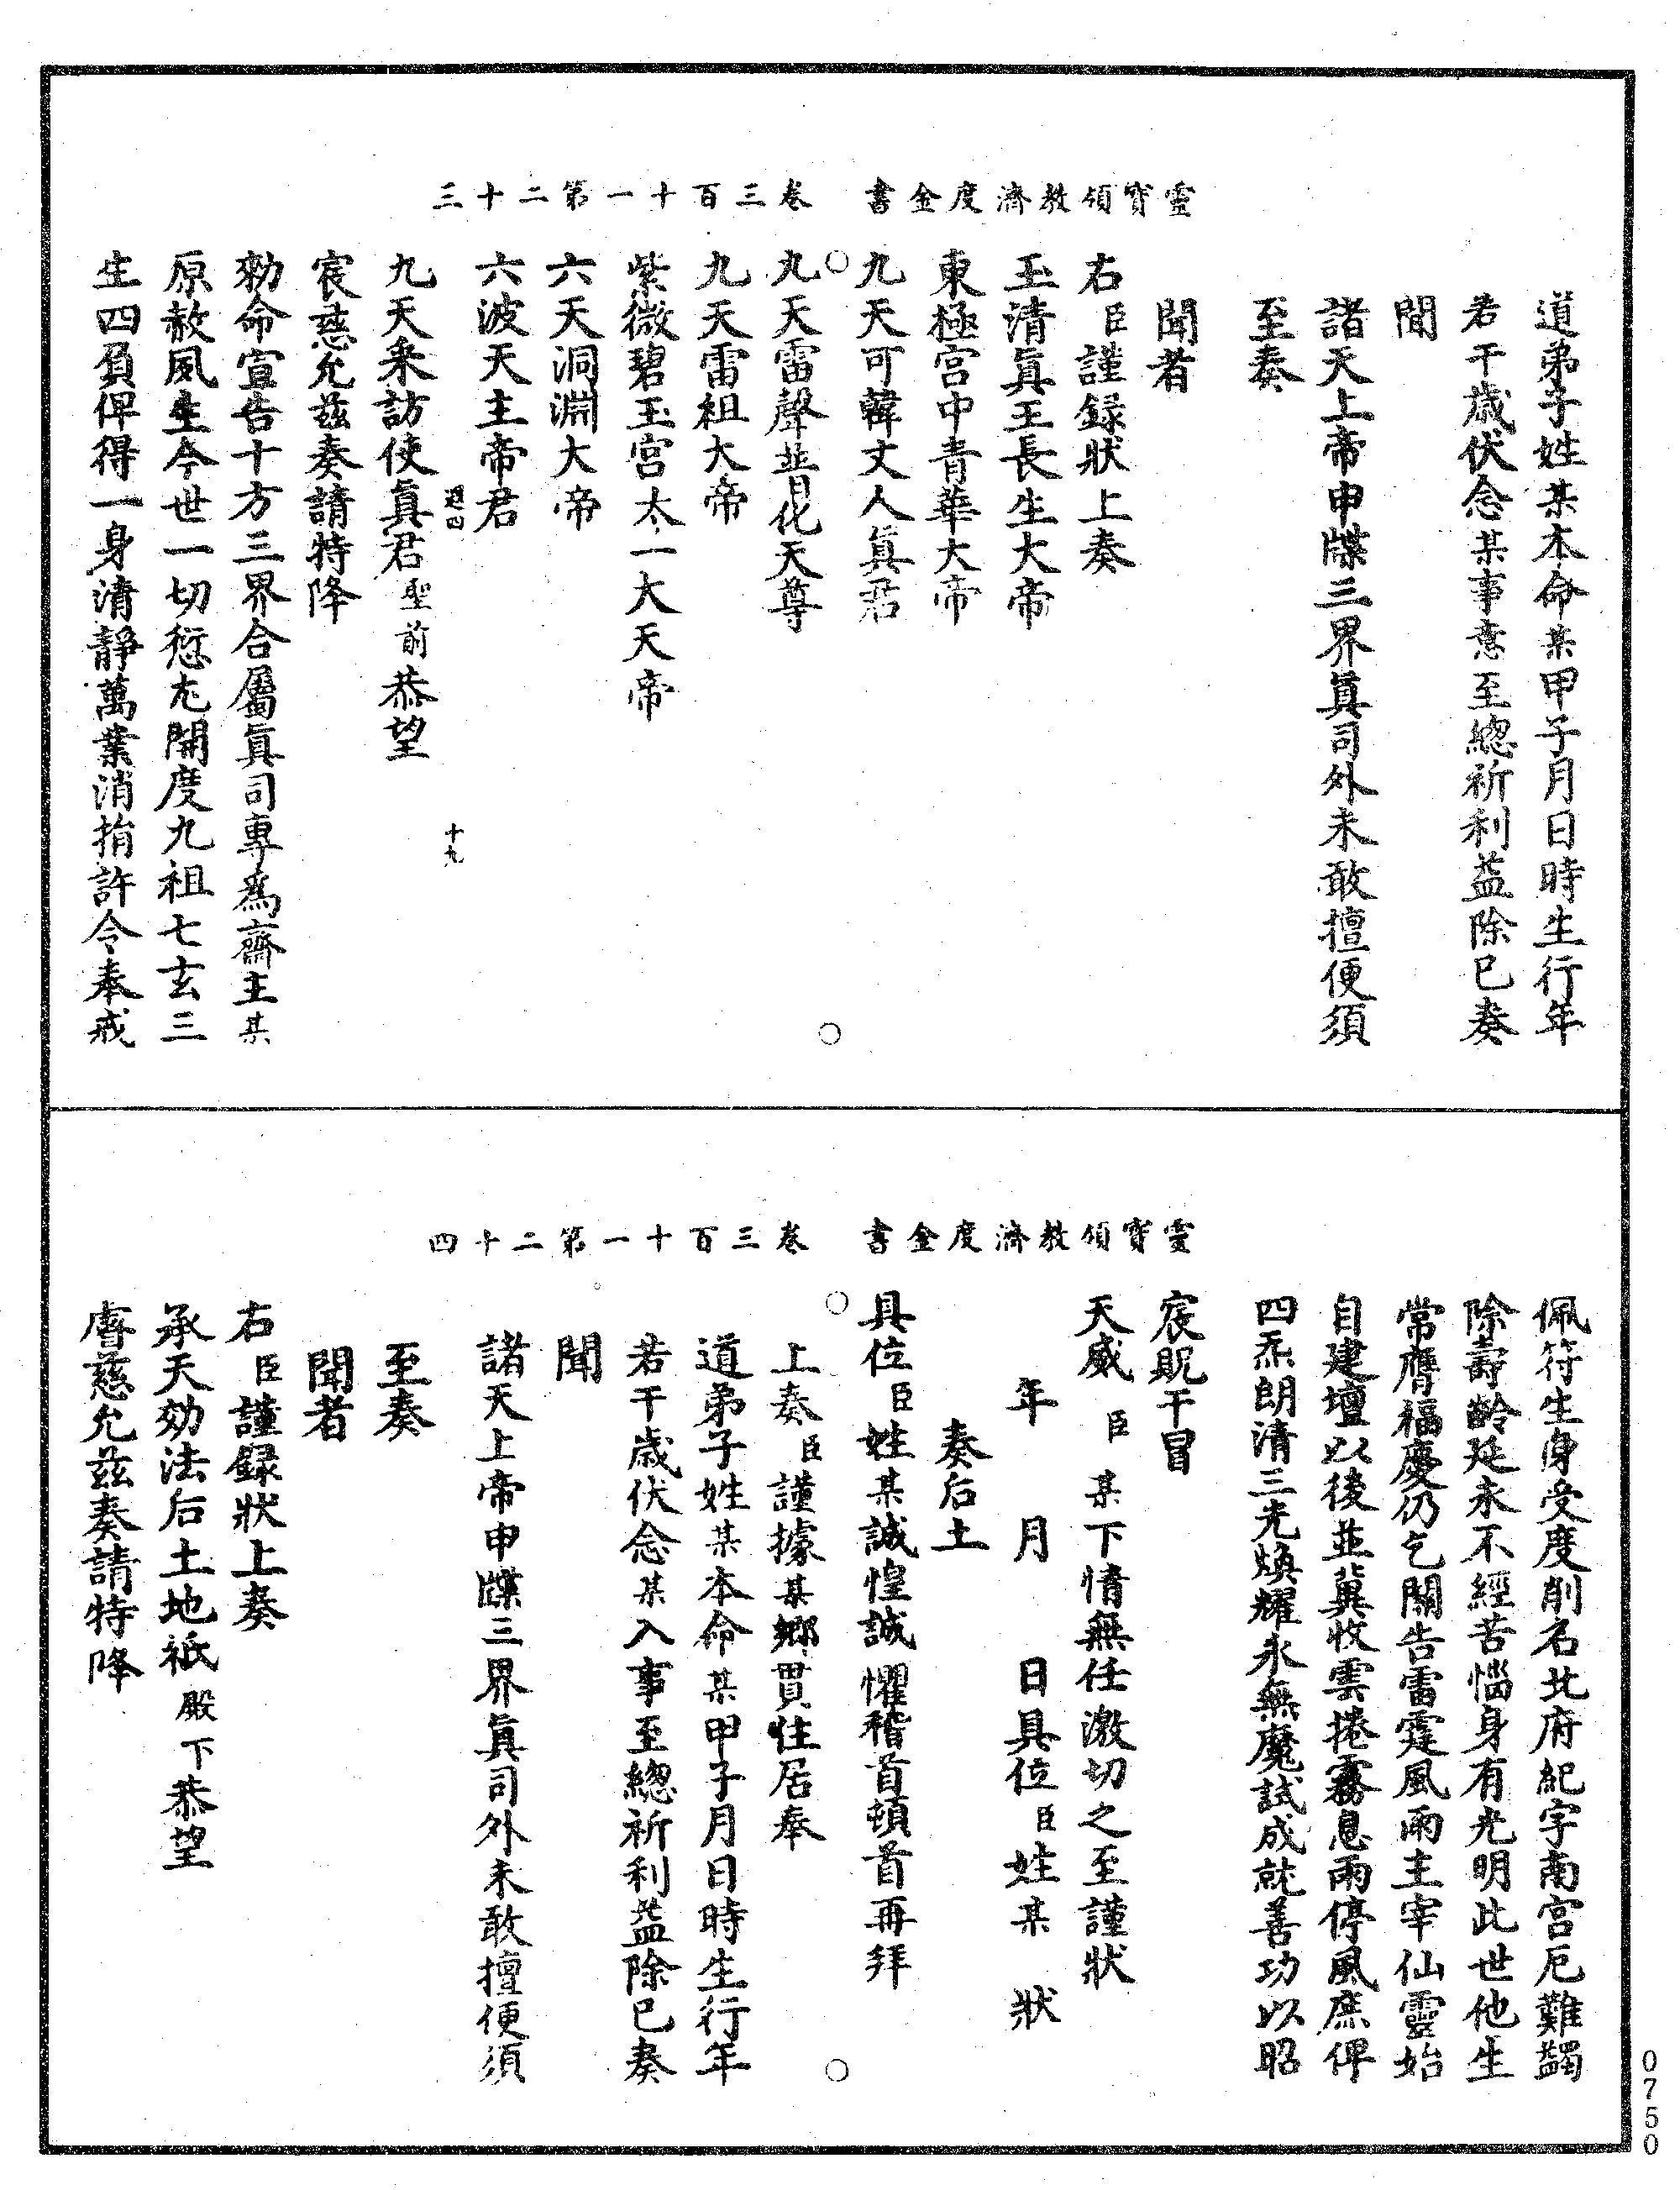 靈寶領教濟度金書 卷三百一十第二十三
道弟子姓某本命某甲子月日時生行年
若干歲伏念某事意至總祈利益除已奏
聞
諸天上帝申牒三界真司外未敢擅便須
至奏
聞者
右臣謹録狀上奏
玉清真王長生大帝
東極宮中青華大帝
九天可韓丈人真君
九天雷聲普化天尊
九天雷祖大帝
紫微碧玉宮太一大天帝
六天洞淵大帝
六波天主帝君
十九
九天采訪使真君聖前恭望
宸慈允茲奏請特降
勑命宣告十方三界合屬真司專爲齋主某
原赦夙生今世一切愆尤開度九祖七玄三
生四負俾得一身清靜萬業消捐許令奉戒
靈寶領教濟度金書 卷三百一十第二十四
佩符生身受度削名北府紀字南宮厄難蠲
除壽齡延永不經苦惱身有光明此世他生
常膺福慶仍乞關告雷霆風雨主宰仙靈始
自建壇以後並冀收雲捲霧息雨停風庶俾
四炁朗清三光煥耀永無魔試成就善功以昭
宸貺干冒
天威臣某下情無任激切之至謹狀
年 月 日具位臣姓某 狀
奏后土
具位臣姓某誠惶誠懼稽首頓首再拜
上奏臣謹據某鄉貫住居奉
道弟子姓某本命某甲子月日時生行年
若干歲伏念某入事至總祈利益除已奏
聞
諸天上帝申牒三界真司外未敢擅便須
至奏
聞者
右臣謹録狀上奏
承天効法后土地祇殿下恭望
睿慈允茲奏請特降
0750